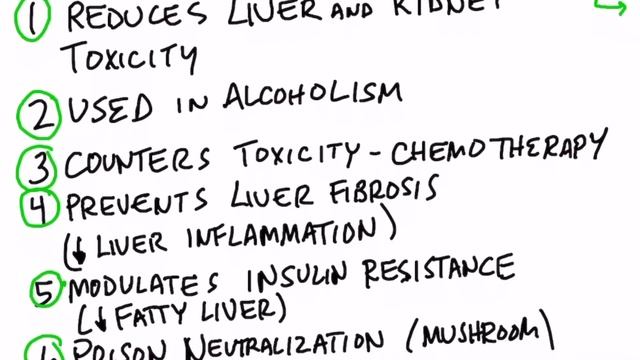 1 REDUCES LIVER AND KIDNEY
TOXICITY
2 USED IN ALCOHOLISM
3 COUNTERS TOXICITY - CHEMOTHERAPY
4 PREVENTS LIVER FIBROSIS
(↓ LIVER INFLAMMATION)
5 MODULATES INSULIN RESISTANCE
(↓ FATTY LIVER)
6 POISON NEUTRALIZATION (MUSHROOM)